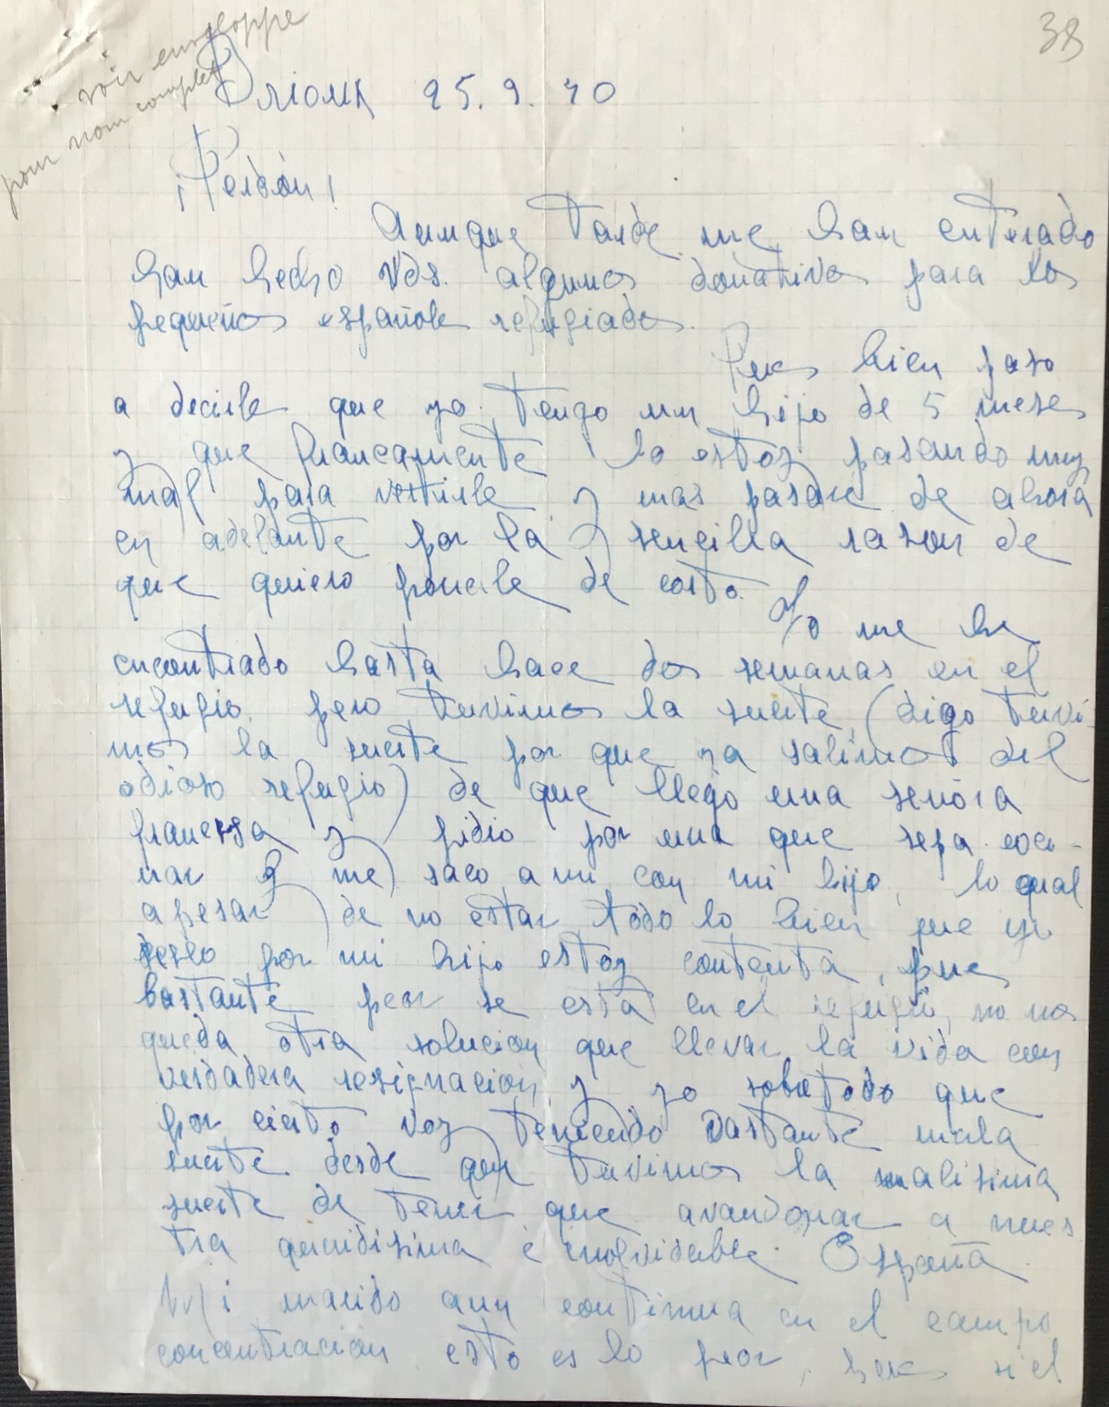 voir enveloppe
pour nom complet
38
25.9.40
¡Perdón!
Aunque tarde me han enterado
han hecho Vds. algunos donativos para los
pequeños españoles refugiados.
Pues bien paso
a decirle que yo tengo un hijo de 5 meses
y que francamente lo estoy pasando muy
mal para vestirle y mas pasare de ahora
en adelante por la sencilla rason de
que quiero ponerle de corto.
Yo me he
encontrado hasta hace dos semanas en el
refugio. pero tuvimos la suerte (digo tuvi-
mos la suerte por que ya salimos del
odioso refugio) de que llego una señora
francesa y pidio por una que sepa coci-
nar y me saco a mi con mi hijo, lo qual
apesar de no estar todo lo bien que yo
deseo por mi hijo estoy contenta, pues
bastante peor se está en el refugio, no nos
queda otra solucion que llevar la vida con
verdadera resignacion y yo sobretodo que
por cierto voy teniendo bastante mala
suerte desde que tuvimos la malisima
suerte de tener que avandonar a nues
tra queridisima e inolvidable España
Mi marido aun continua en el campo
concentracion esto es lo peor, pues si el